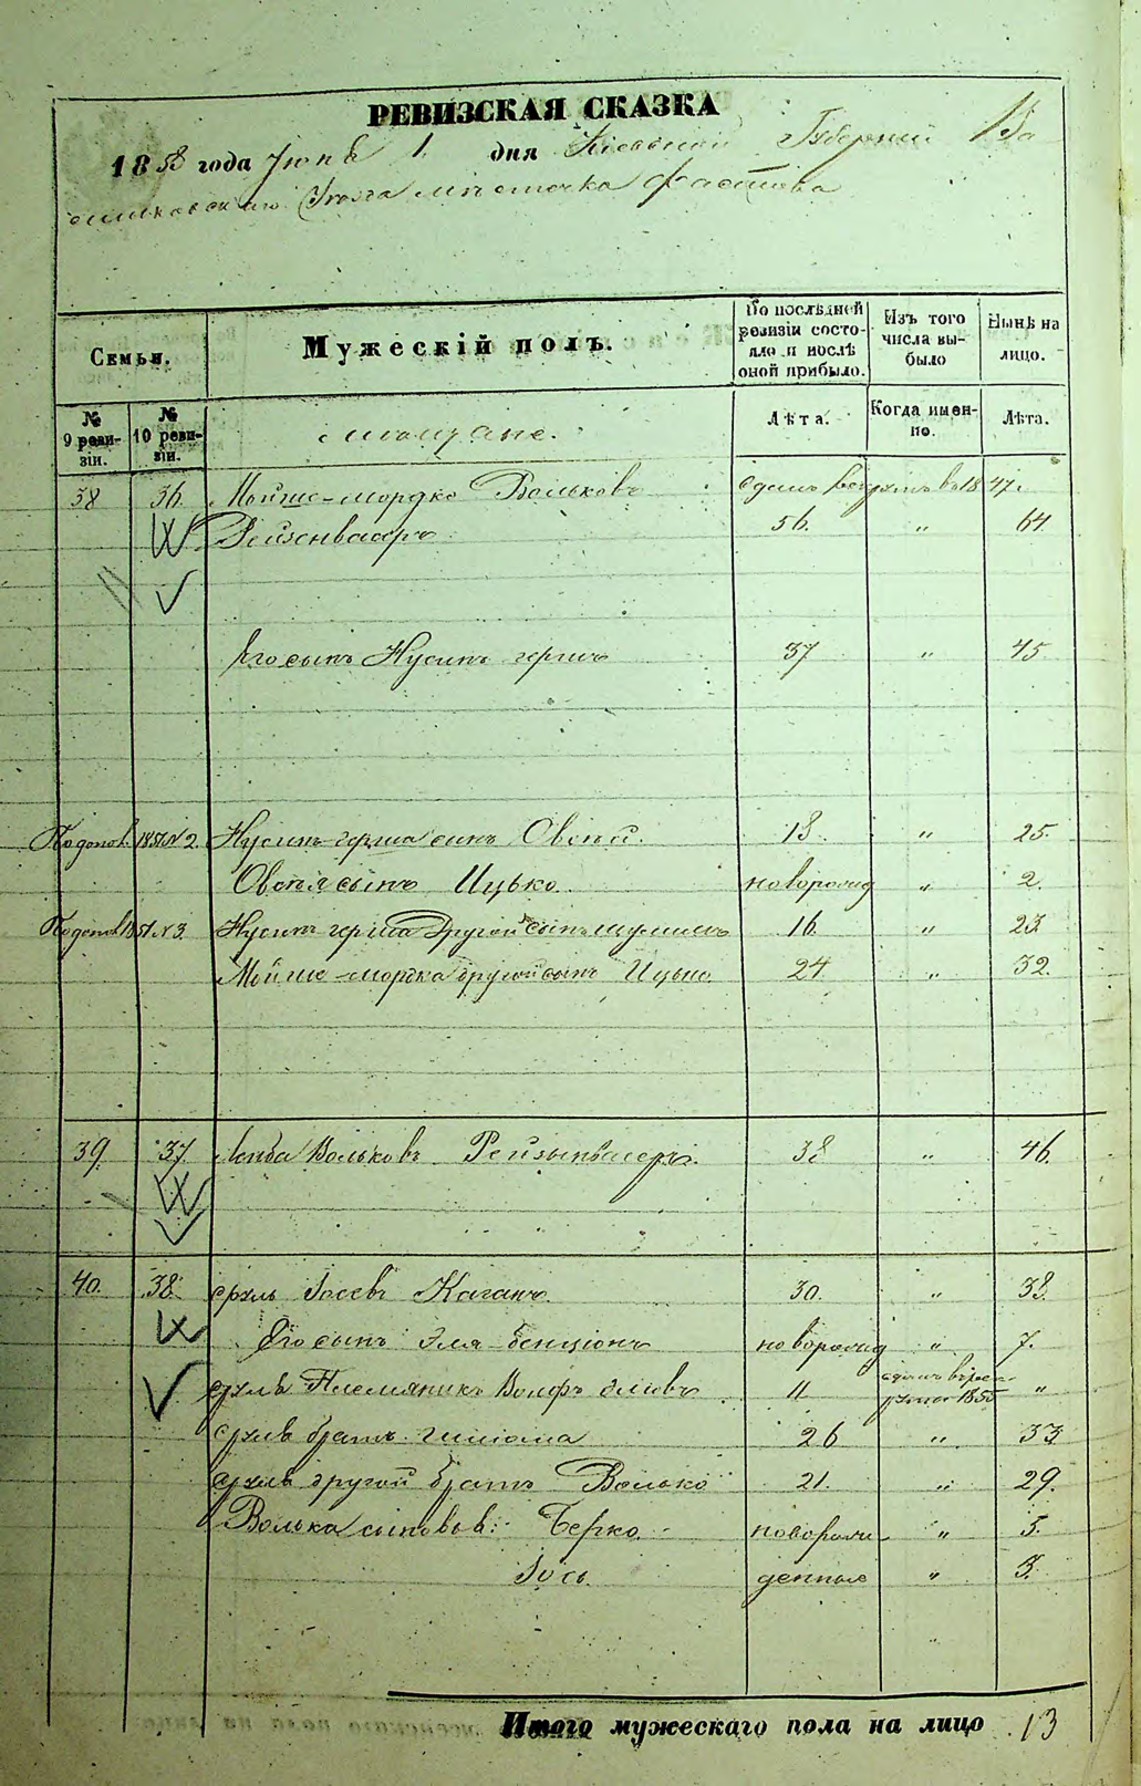 РЕВИЗСКАЯ СКАЗКА
1858 года Июня 1 дня Кіевской Губерніи Ва
сильковскаго Уезда мѣстечка Фастова
Семьи.
Мужескій полъ.
По послѣдней ревизіи состояло и послѣ оной прибыло.
Изъ того числа выбыло
Нынѣ на лицо.
№ 9 ревизіи.
№ 10 ревизіи.
мѣщане.
Лѣта.
Когда именно.
Лѣта.
38 36. Мойше-мордко Вольковъ въ 1847.
Рейзенвасеръ 56. " 64
Его сынъ Нусинъ гершъ 37 " 45
По допол. 1851 № 2. Нусинъ-герша сынъ Овсѣй. 18 " 25.
Овсѣя сынъ Ицько новорожд " 2.
По допол 1851 № 3. Нусинъ герша другой сынъ 16 " 23
Мойше-мордка другой сынъ Ицько 24 " 32.
39 37. Лейба Вольковъ Рейзынвасеръ. 38 " 46.
40. 38. Сруль Іосевъ Каганъ 30. " 38
Его сынъ Эля-бенціонъ новорожд " 7.
Сруля Племяникъ Волфъ 11 1855 "
Сруля братъ 26 " 33
Сруля другой братъ Волько 21. " 29.
Волька сыновья: Берко новорож " 5.
Іось денные " 3.
Итого мужескаго пола на лицо 13